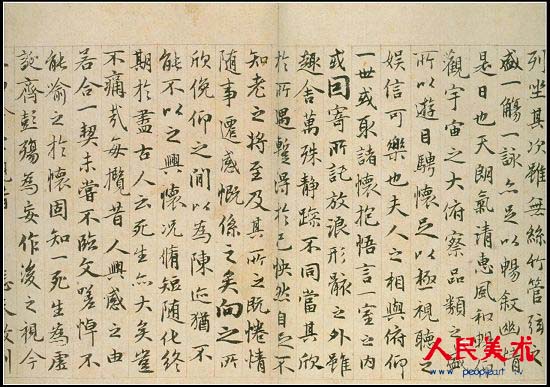 列坐其次雖無絲竹管弦之
盛一觴一詠亦足以暢叙幽情
是日也天朗氣清惠風和暢
觀宇宙之大俯察品類之盛
所以遊目騁懷足以極視聽之
娛信可樂也夫人之相與俯仰
一世或取諸懷抱悟言一室之内
或因寄所託放浪形骸之外雖
趣舍萬殊静躁不同當其欣
於所遇暫得於己怏然自足不
知老之將至及其所之既惓情
隨事遷感慨係之矣向之所
欣俛仰之間以為陳迹猶不
能不以之興懷況脩短隨化終
期於盡古人云死生亦大矣豈
不痛哉每攬昔人興感之由
若合一契未嘗不臨文嗟悼不
能喻之於懷固知一死生為虛
誕齊彭殤為妄作後之視今
人民美术
www.peopleart.tv